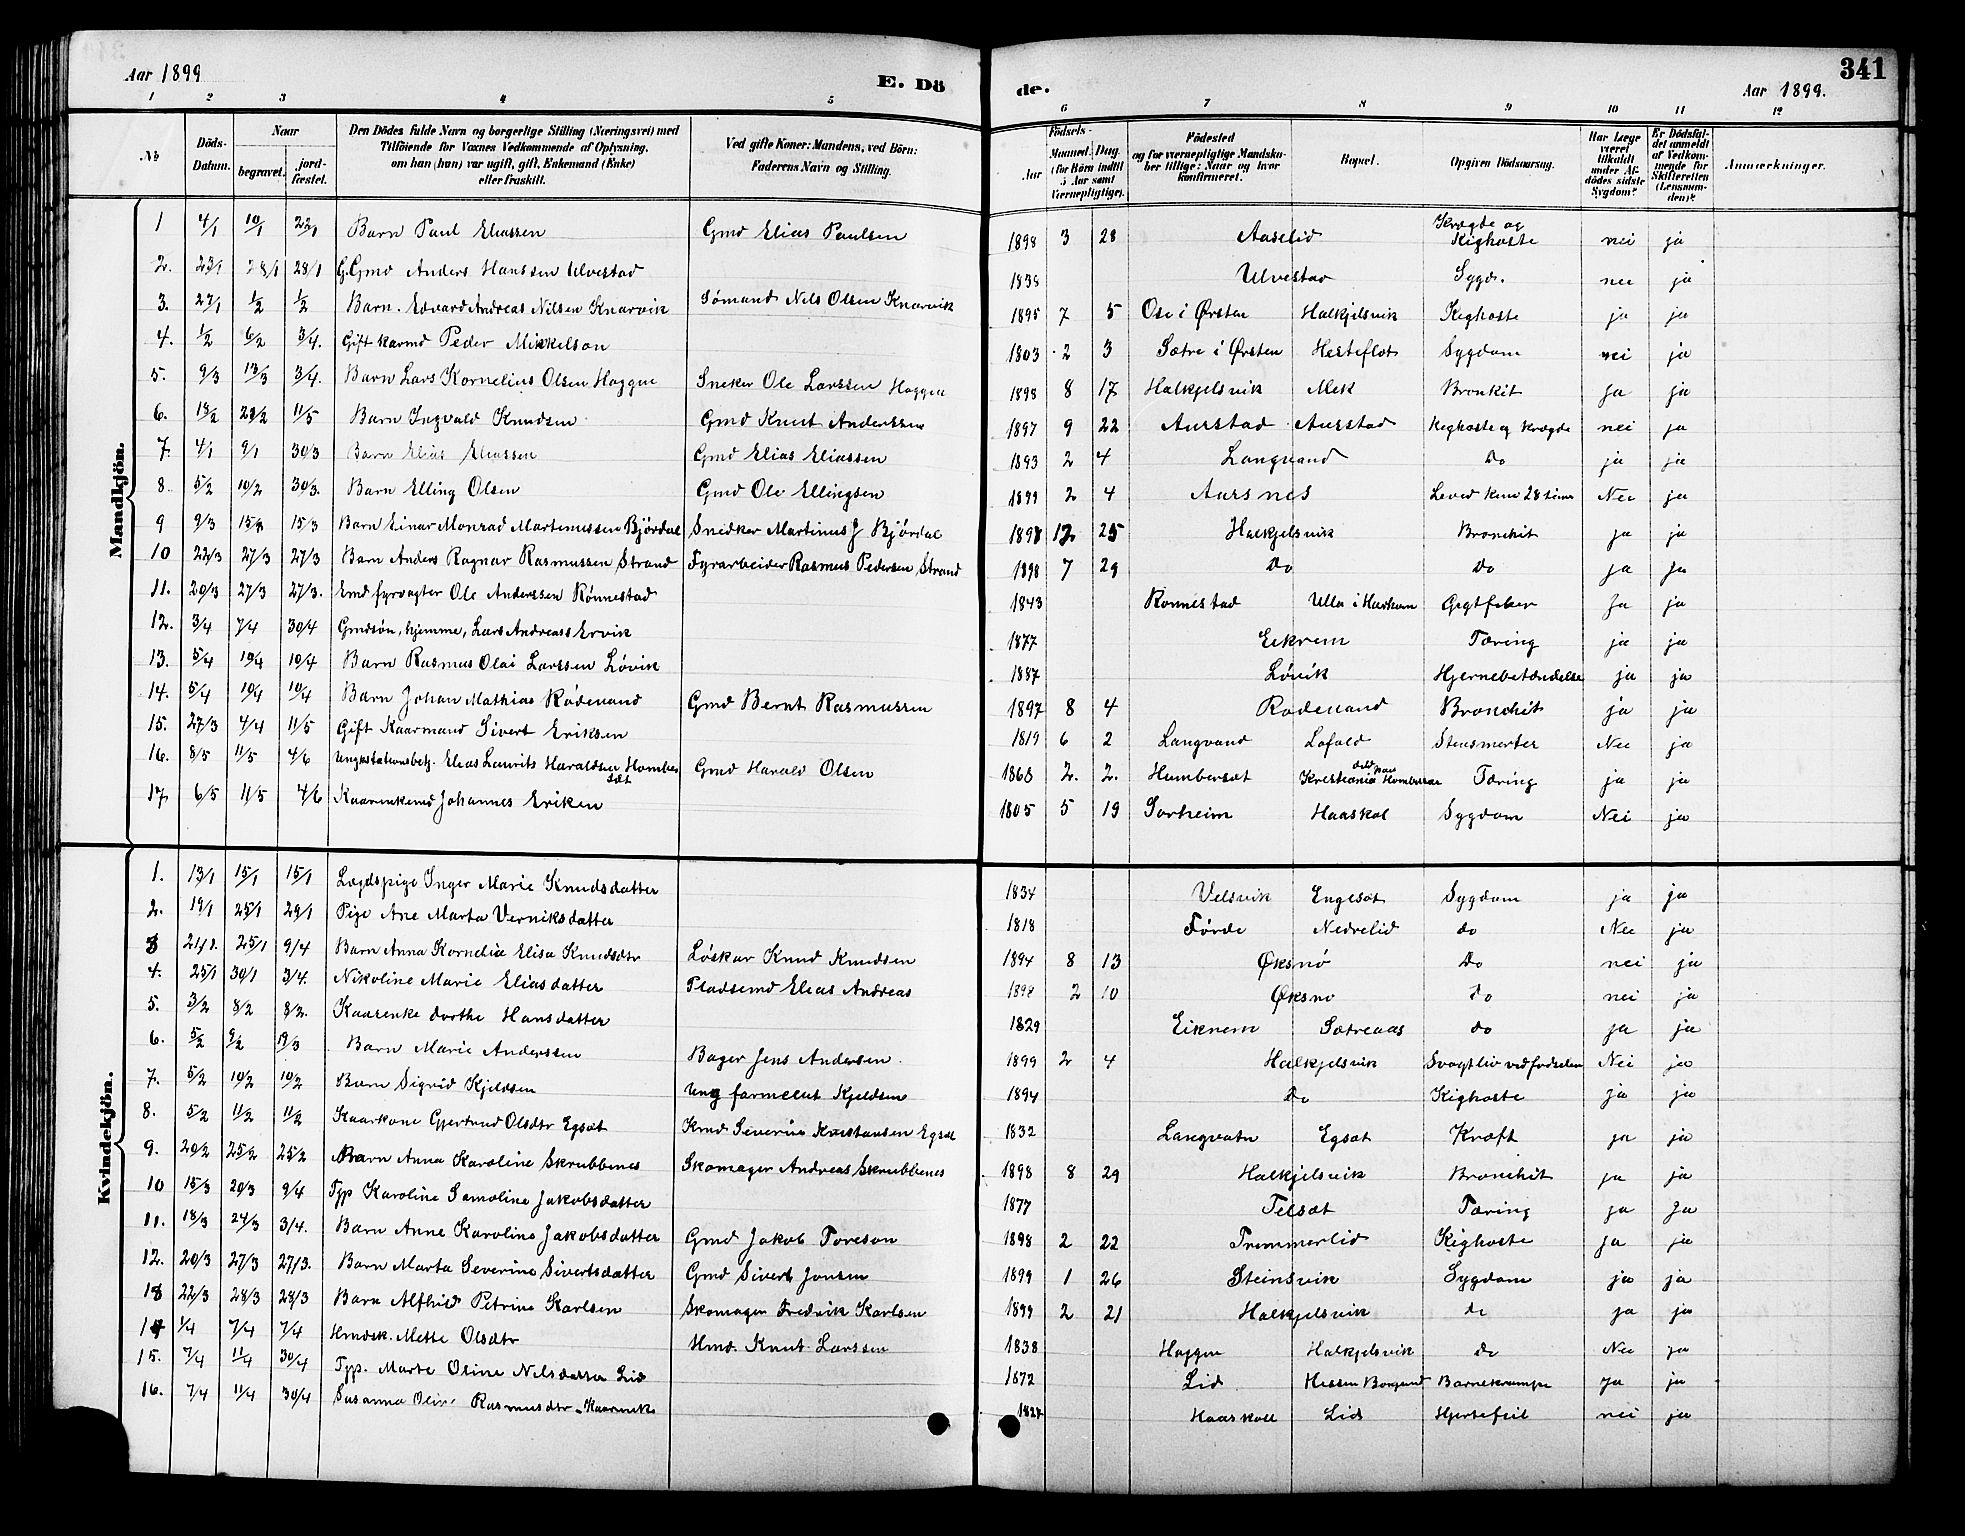 Aar 1899
E. Dö
de.
Aar 1899.
341
1 2 3 4 5 6 7 8 9 10 11 12
No
Döds-Datum.
Naar
begravet.
jord-fæstet.
Den Dödes fulde Navn og borgerlige Stilling (Næringsvei) med
Tilföiende for Voxnes Vedkommende af Oplysning,
om han (hun) var ugift, gift, Enkemand (Enke)
eller fraskilt.
Ved gifte Koner: Mandens, ved Börn:
Faderens Navn og Stilling.
Födsels-
Aar
Maaned. Dag.
(for Börn indtil
5 Aar samt
Værnepligtige).
Födested
og for værnepligtige Mandska-
ber tillige: Naar og hvor
konfirmeret.
Bopæl.
Opgiven Dödsaarsag.
Har Læge
været
tilkaldt
under Af-
dödes sidste
Sygdom?
Er Dödsfal-
det anmeldt
af Vedkom-
mende for
Skifteretten
(Lensman-
den)?
Anmærkninger.
Mandkjön.
1 4/1 10/1 22/1 Barn Paul Eliassen Gmd Elias Paulsen 1898 3 28 Aaselid Krægde og Kighoste nei ja
2. 23/1 28/1 28/1 G.Gmd Anders Hanssen Ulvestad Ulvestad Sygd. nei ja
3. 27/1 1/2 1/2 Barn. Edvard Andreas Nilsen Knarvik Sömand Nils Olsen Knarvik 1895 7 5 Ose i Ørsten Halkjelsvik Kighoste ja ja
4. 1/2 6/2 3/4. Gift kaarmd Peder Mikkelson 1803 2 3 Sætre i Ørsten Hesteflot Sygdom nei ja
5. 9/3 13/3 3/4. Barn Lars Kornelius Olsen Haggen Sneker Ole Larssen Haggen 1898 8 17 Halkjelsvik Mek Bronkit ja ja
6. 22/2 11/5 Barn Ingvald Knudsen Gmd Knut Anderssen 1897 9 22 Aurstad Aurstad Kighoste og Krægde nei ja
7. 4/1 9/1 30/3 Barn Elias Eliassen Gmd Elias Eliassen 1893 2 4 Langvand Do ja ja
8. 5/2 10/2 30/3. Barn Elling Olsen Gmd Ole Ellingsen 1899 2 4 Aursnes Leved kun 28 timer Nei ja
9 9/3 15/3 15/3 Barn Einar Monrad Martinussen Bjørdal Snedker Martinus J Bjørdal 1897 12 25 Halkjelsvik Bronchit ja ja
10 22/3 27/3 27/3 Barn Anders Ragnar Rasmussen Strand Fyrarbeider Rasmus Pedersen Strand 1898 7 29 Do Do ja ja
11. 20/3 27/3 27/3. Emd fyrvogter Ole Anderssen Rønnestad 1843 Rønnestad Ulla i Harham Gigtfeber Ja ja
12. 3/4 7/4 30/4 Gmdsøn, hjemme, Lars Andreass Ervik 1877 Eikrem Tæring ja ja
13. 5/4 10/4 10/4 Barn Rasmus Olai Larssen Løvik 1887 Løvik Hjernebetændelse ja ja
14. 5/4 10/4 10/4 Barn Johan Mathias Rødevand Gmd Bernt Rasmussen 1897 8 4 Rødevand Bronchit ja ja
15. 27/3 4/4 11/5 Gift Kaarmand Sivert Eriksen 1819 6 2 Langvand Lofald Stensmerter Nei ja
16. 8/5 11/5 4/6 Ungkstationsbetj. Elias Laurits Haraldsen Hombersæt Gmd Harald Olsen 1868 2. 2. Humbersæt Kristiania Tæring ja ja
17. 6/5 11/5 4/6 Kaarenkemd Johannes Eriken 1805 5 19 Sorheim Haaskol Sygdom Nei ja
Kvindekjön.
1. 13/1 15/1 15/1 Lægdspige Inger Marie Knudsdatter 1834 Velsvik Engesæt Sygdom ja ja
2. 19/1 25/1 29/1 Pige Ane Marta Verniksdatter 1818 Førde Nedrelid do Nei ja
3 21/1. 25/1 9/4 Barn Anna Kornelia Elisa Knudsdtr Løskar Knud Knudsen 1894 8 13 Øksnø Do nei ja
4. 25/1 30/1 3/4. Nikoline Marie Eliasdatter Pladsemd Elias Andreas 2 10 Øksnø do nei ja
5. 3/2 8/2 8/2. Kaarenke dorthe Hansdatter 1829 Eiknem Sætreaas do ja ja
6. 5/2 9/2 Barn Marie Anderssen Bager Jens Andersen. 1899 2 4 Halkjelsvik Svagtliv ved fødselen Nei ja
7. 5/2 10/2 10/2 Barn Sigrid Kjeldsen 1894 Do Kighoste ja ja
8. 5/2 11/2 11/2 Kaarkone Gjertrud Olsdtr Egsæt Kmd Severin Kristansen Egsæt 1832 Langvatn Egsæt Kræft ja ja
9. 20/2 25/2 25/2 Barn Anna Karoline Skrubbenes Skomager Andreas Skrubbenes 1898 8 29 Halkjelsvik Bronchit ja ja
10 15/3 20/3 9/4 Typ Karoline Samoline Jakobsdatter 1877 Felsæt Tæring ja Ja
11. 18/3 24/3 3/4. Barn Anne Karoline Jakobsdatter Gmd Jakob Toreson 1898 2 22 Tremmerlid Kighoste ja ja
12. 20/3 27/3 27/3. Barn Marta Severine Sivertsdatter Gmd Sivert Jonsen 1899 1 26 Steinsvik Sygdom ja ja
13 22/3 28/3 28/3 Barn Alfhild Petrine Karlsen Skomager Fredrik Karlsen 1899 2 21 Halkjelsvik do ja ja
14 1/4 7/4 7/4 Hmdsk. Mette Olsdtr Hmd. Knut Larssen 1838 Haggen Halkjelsvik do Nei ja
15. 7/4 11/4 30/4 Typ. Marte Oline Nilsdatter Lid 1872 Lid Hessen Borgund Barnekrampe Ja ja
16. 7/4 11/4 30/4 Susanna Rasmusdtr Haaskoll Lid Hjertefeil nei ja